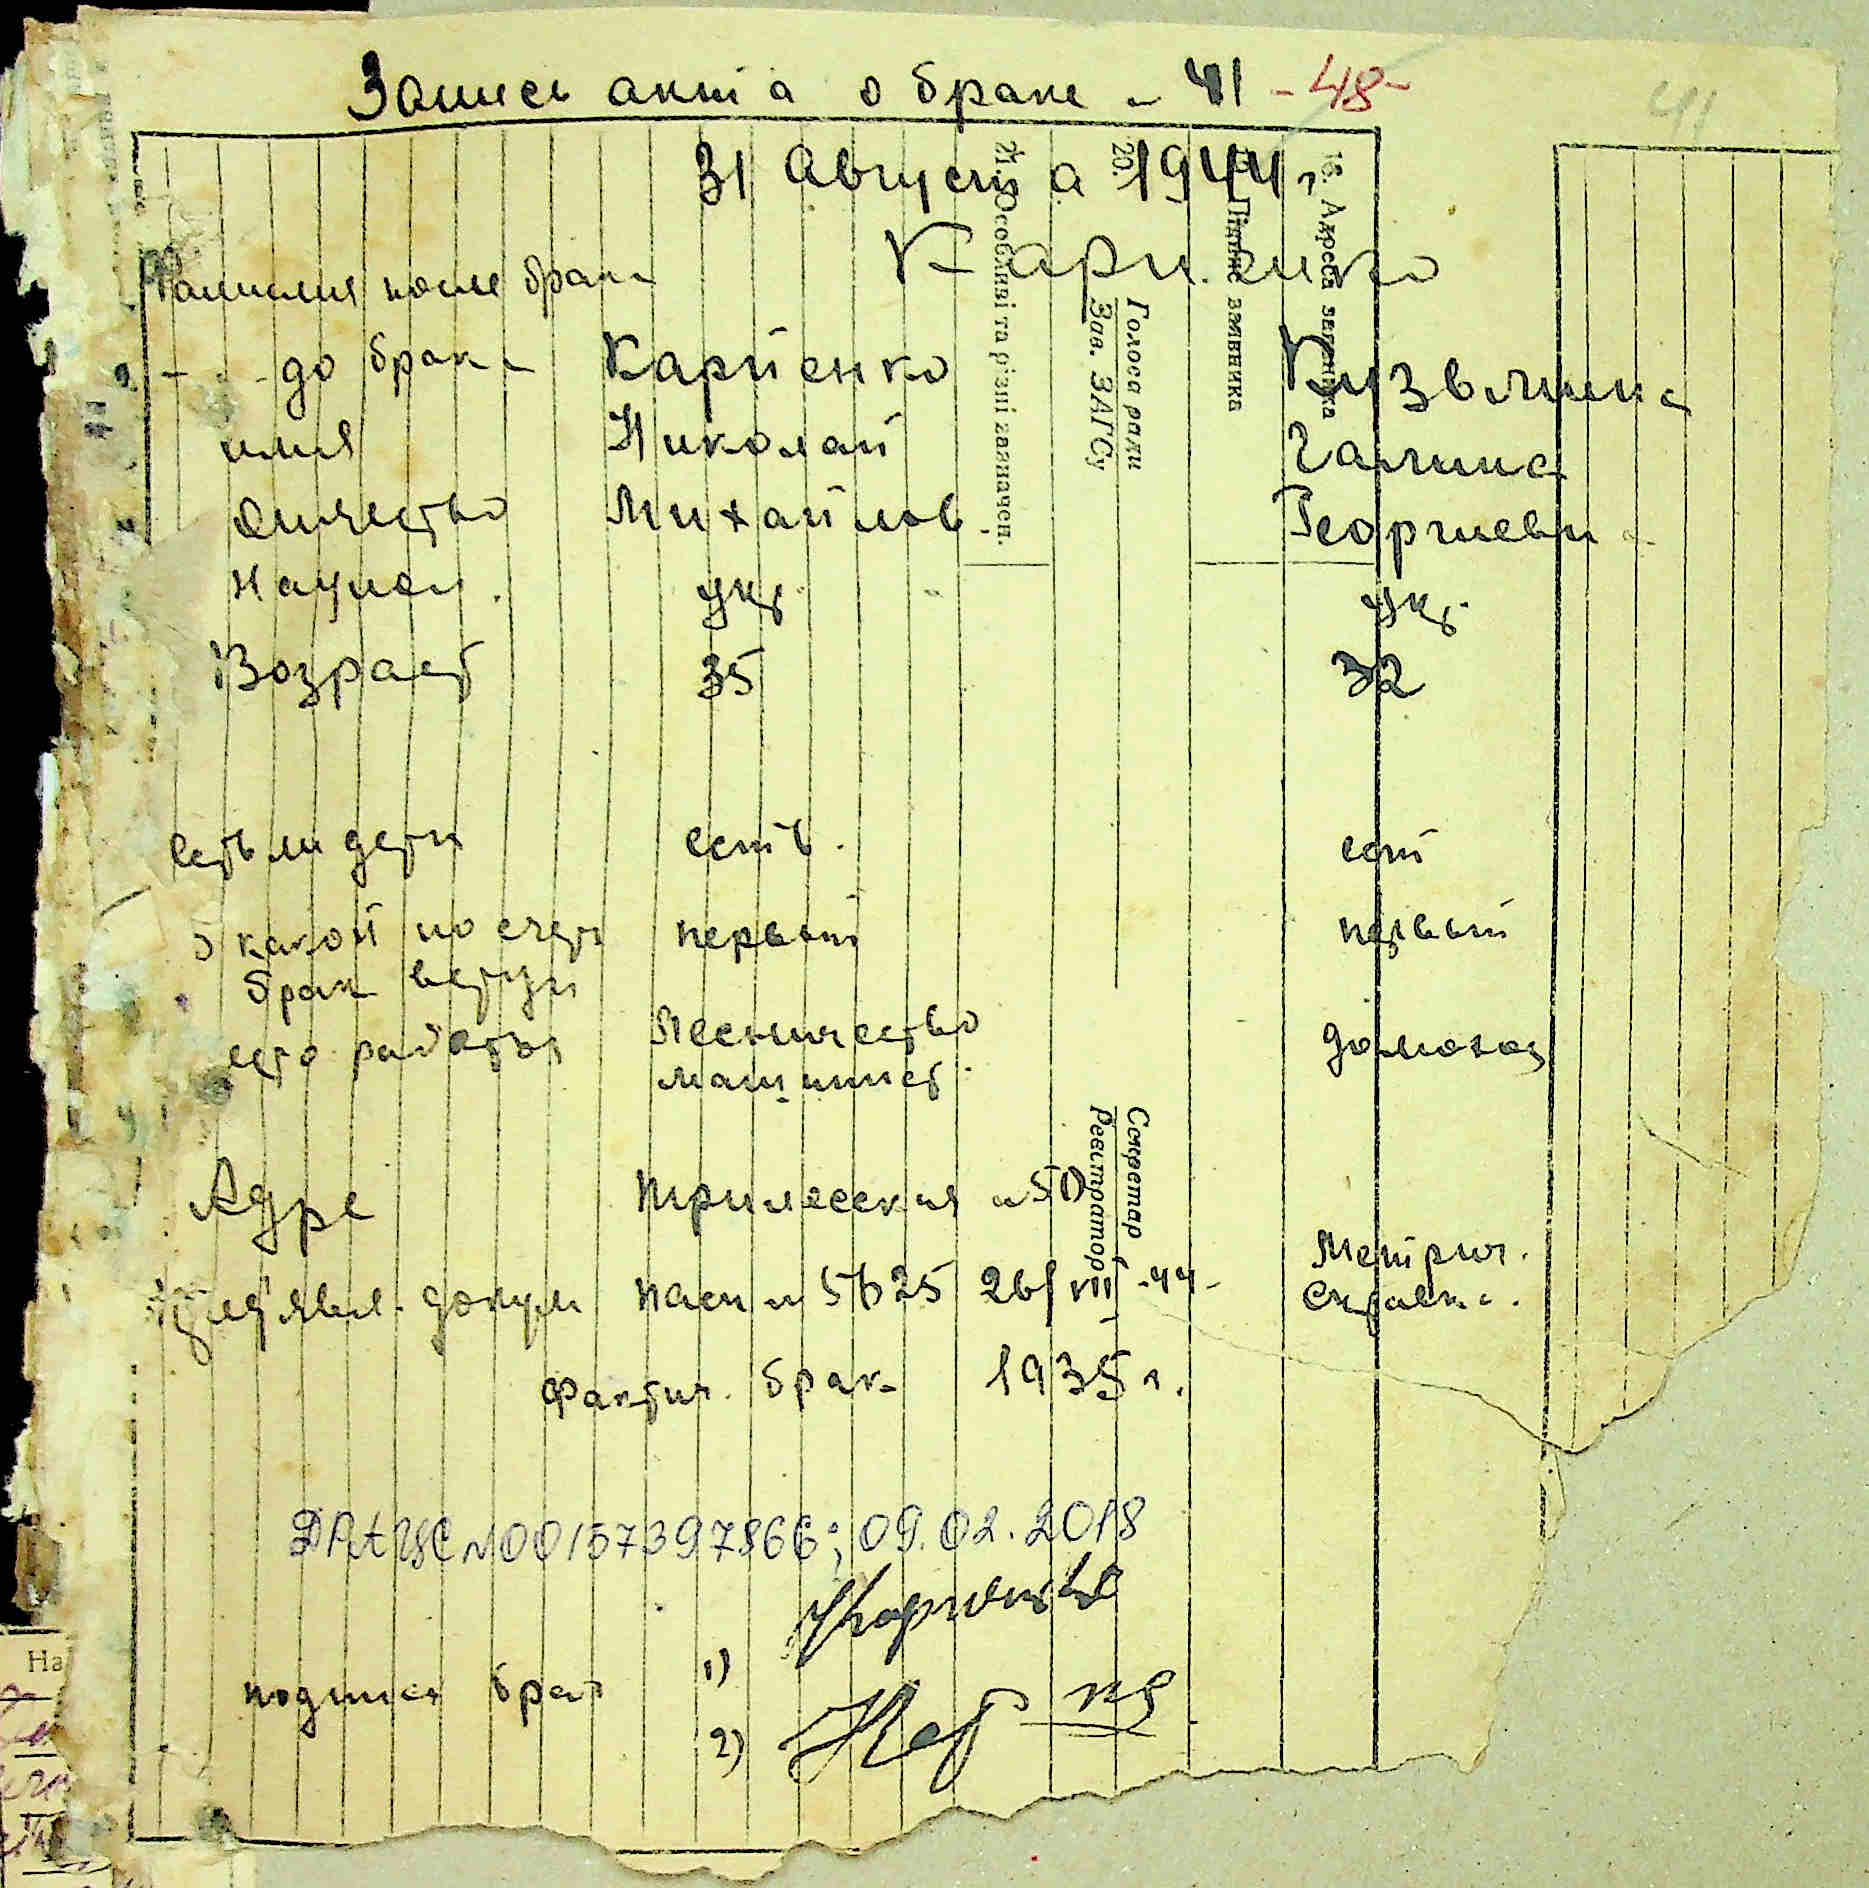 Запись акта о браке № 41 -48-
41
31 Августа 1944 г
Фамилия после брака Карпенко
- " - до брака Карпенко Кузьмина
имя Николай Галина
Отчество Михайлов Георгиевн
Национ. укр. укр.
Возраст 35 32
есть ли дети есть. ест
в какой по счету первый первый
брак вступ
место работы Лесничество домохоз
машинист.
Адре Трилесская №50
Метрич.
док. пасп № 5625 26/VII -44- Справка.
Фактич. брак 1935 г.
ДРАЦС №00157397866; 09.02.2018
подписи брач 1) Карпенко
2) Кар
16. Адреса заявника
Підпис заявника
20.
Голова ради
Зав. ЗАГСу
Секретар
Реєстратор
21. Особливі та різні зазначен.
На